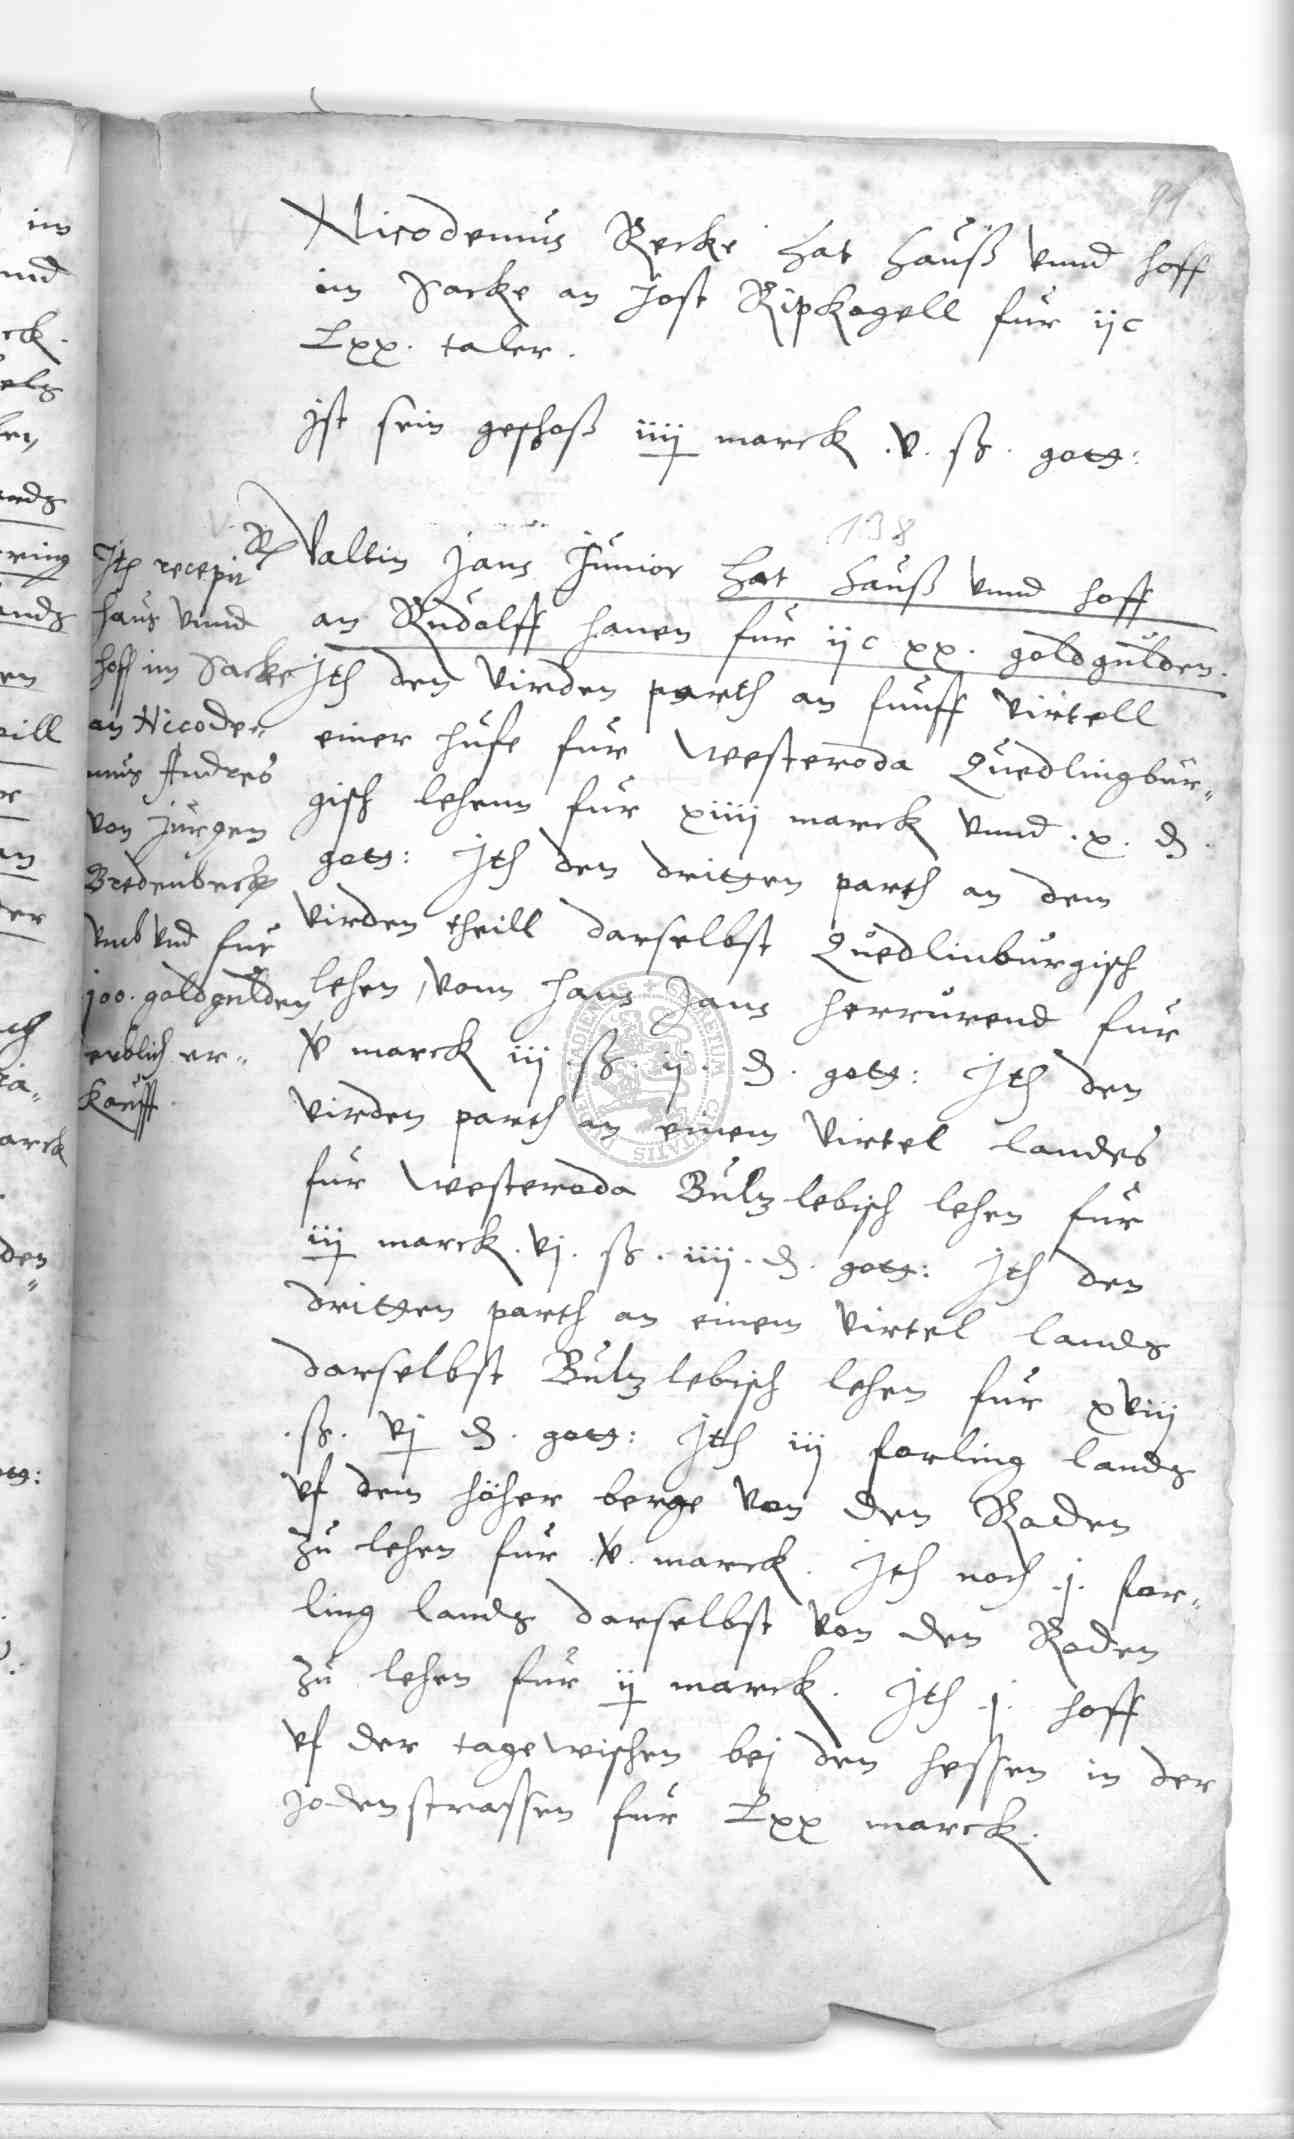 99
Nicodemus Recke hat hauß vnnd hoff
im Sacke an Jost Ripkogell fur ijc
Lxx. taler.
Ist sein geschoß iiij marck .v. ß. gotg:
138
Valtin Jans Junior hat hauß vnnd hoff
an Rudolff hanen fur ijc xx. goldgulden.
Ith den virden parth an funff virtell
einer hufe fur Westeroda Quedlingbur=
gisch lehenn fur xiiij marck vnnd .x. d.
gotg: Ith den dritten parth an dem
virden theill darselbst Quedlinburgisch
lehen, vonn hans Jans herrurend fur
v marck iij ß. ij. d. gotg: Ith den
virden parth an einem virtel landes
fur Westeroda Bultzlebisch lehen fur
iij marck. vj. ß. iiij. d. gotg: Ith den
dritten parth an einem virtel lands
darselbst Bultzlebisch lehen fur xviij
.ß. vj d. gotg: Ith iij forling lands
vf dem höher berge von den Roden
zu lehen fur .v. marck. Ith noch .j. for=
ling lands darselbst von den Roden
zu lehen fur ij marck. Ith .j. hoff
vf der tagewischen bej den hessen in der
Jodenstrassen fur Lxx marck.
Ith recepit
haus vnnd
hoff im Sacke
an Nicode=
mus Andres
von Jurgen
Bredenbeck
vnd fur
joo. goldgulden
erblich er=
kaufft.